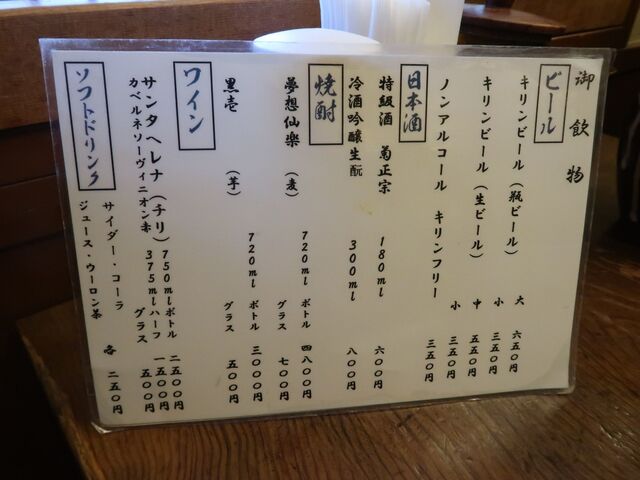 御飲物
ビール
キリンビール（瓶ビール） 大 六五〇円
小 五〇〇円
キリンビール（生ビール） 中 五五〇円
小 三五〇円
ノンアルコール キリンフリー 三五〇円
日本酒
特級酒 菊正宗 180ml 六〇〇円
冷酒吟醸生酛 300ml 八〇〇円
焼酎
夢想仙楽 （麦） 720ml ボトル 四八〇〇円
グラス 七〇〇円
黒壱 （芋） 720ml ボトル 三〇〇〇円
グラス 五〇〇円
ワイン
サンタヘレナ（チリ） 750mlボトル 二五〇〇円
カベルネソーヴィニオン赤 375mlハーフ 一五〇〇円
グラス 五〇〇円
ソフトドリンク
サイダー・コーラ
ジュース・ウーロン茶 各 二五〇円